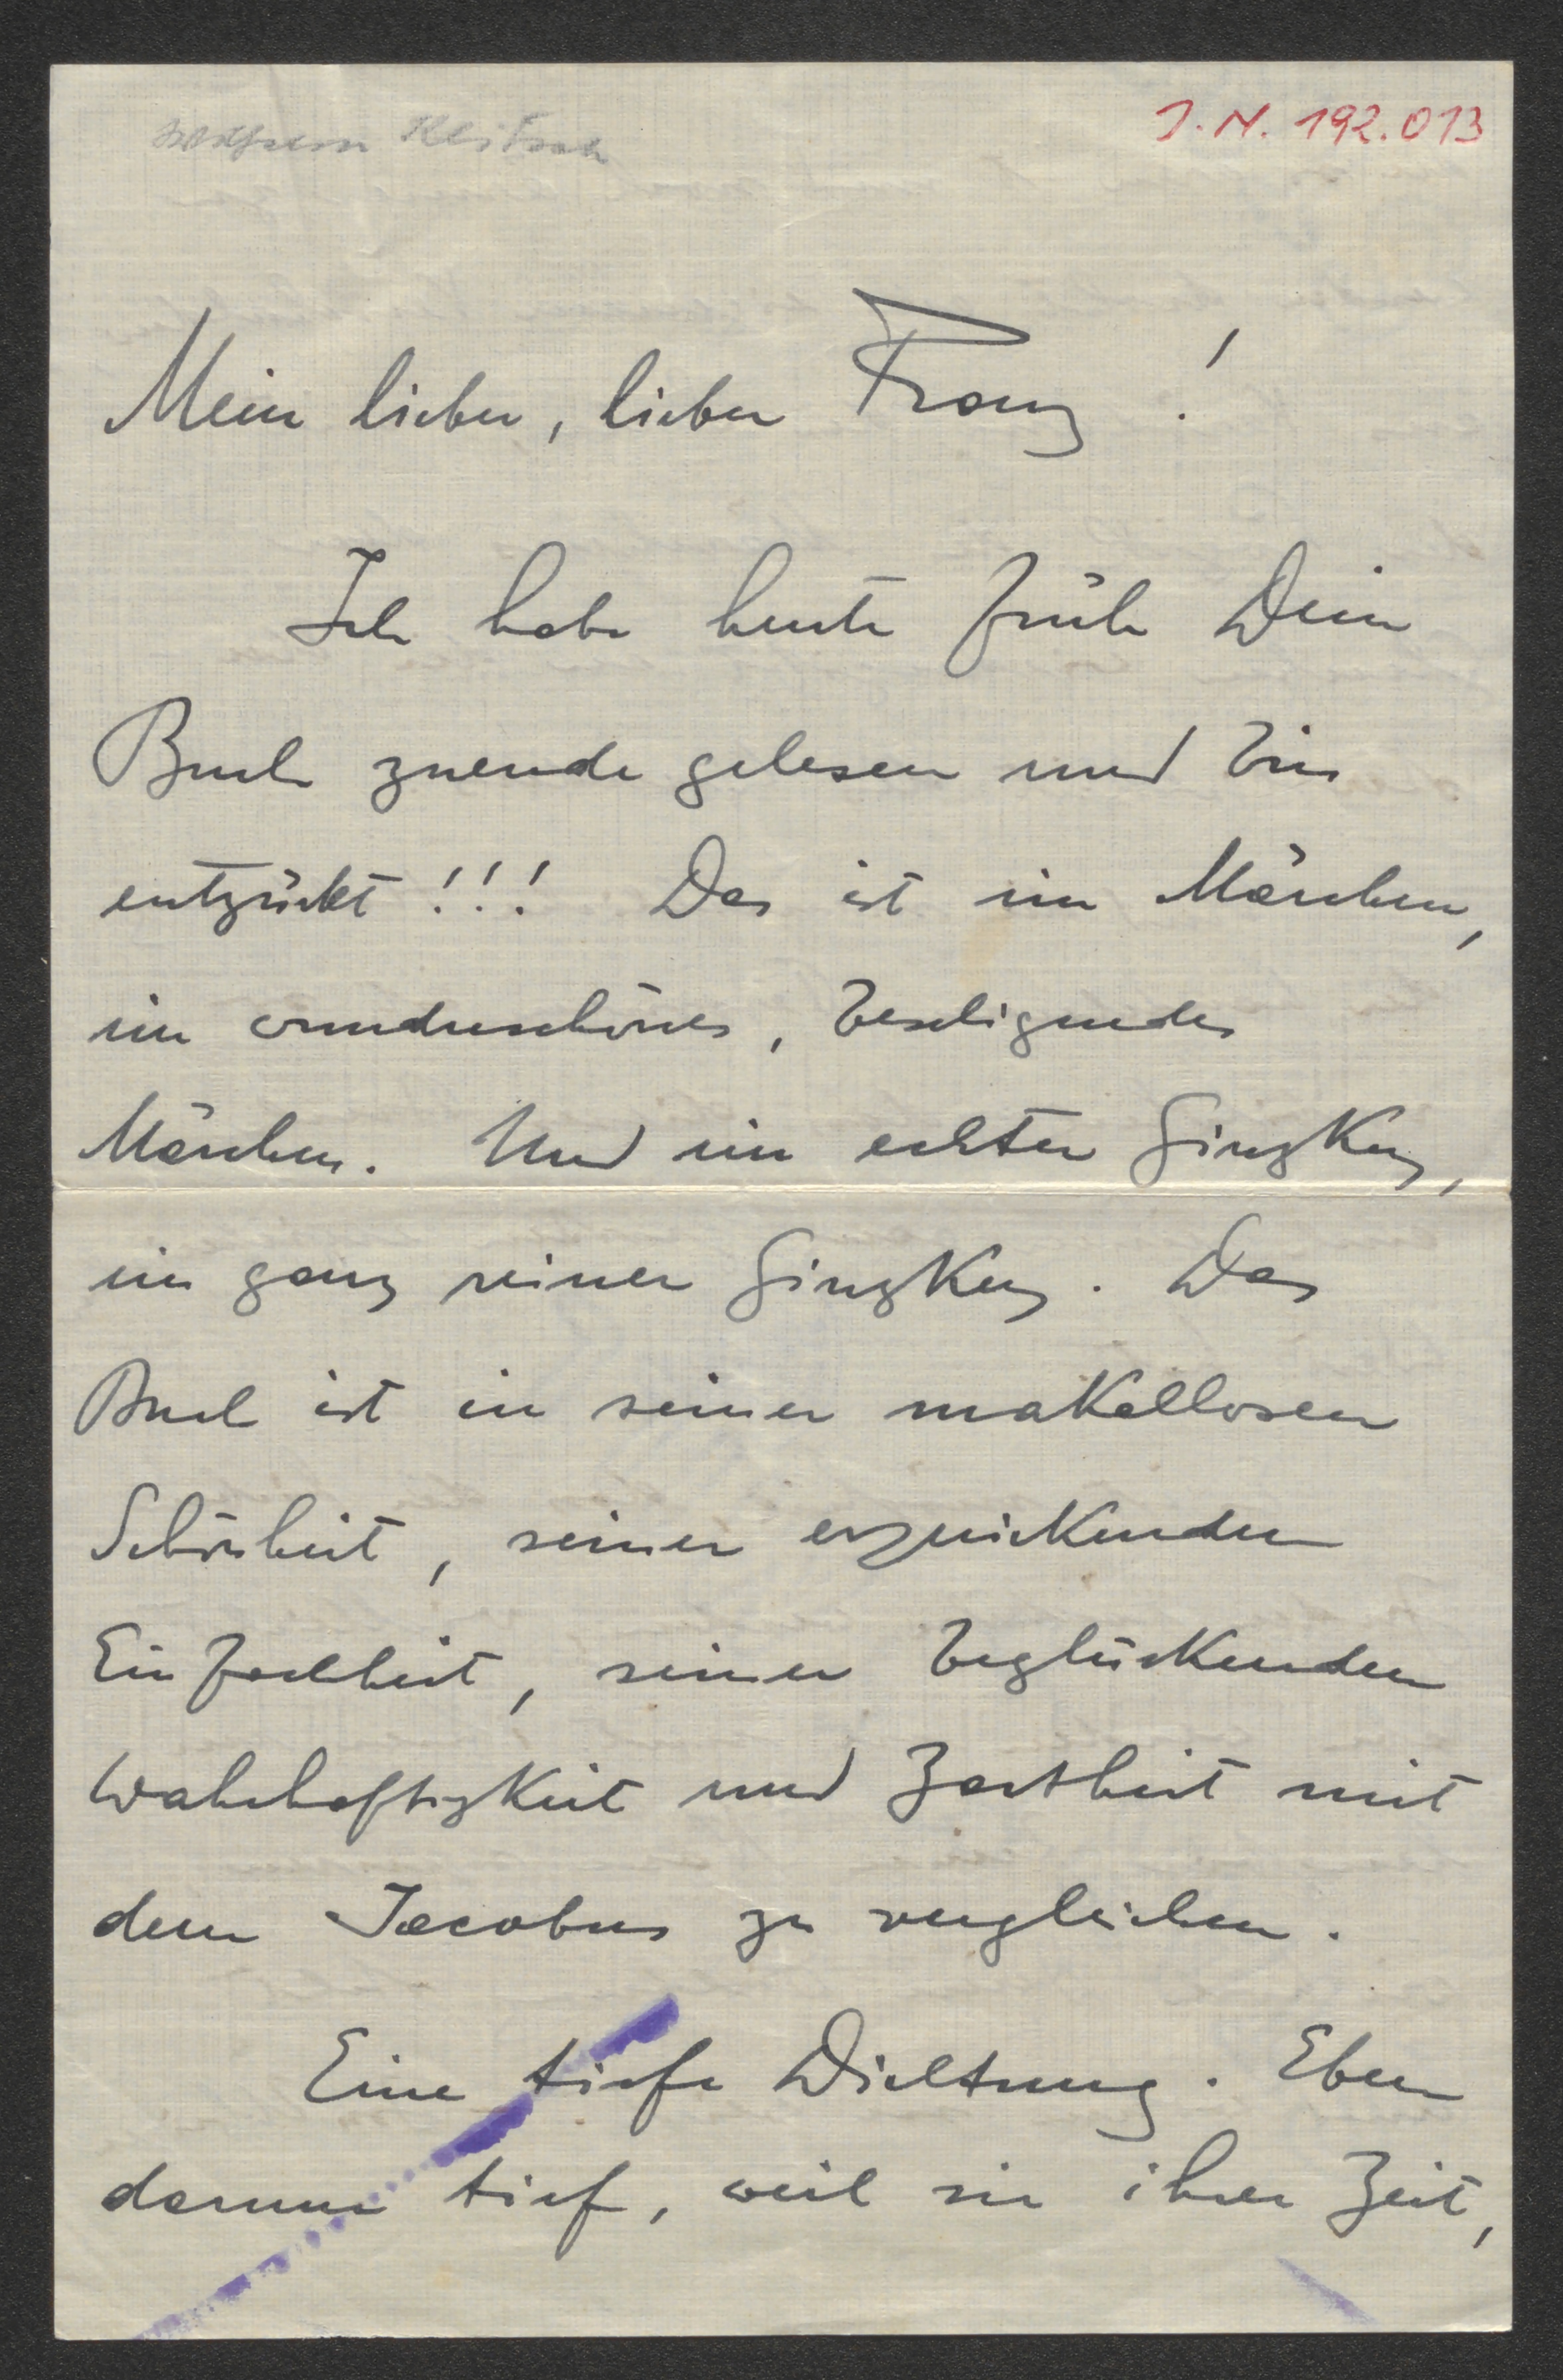 J. N. 192.013
Mein lieber, lieber Franz !
Ich habe heute früh Dein
Buch zuende gelesen und bin
entzückt !!! Das ist ein Märchen,
ein wunderschönes, beseligendes
Märchen. Und ein echter Ginzkey,
ein ganz reiner Ginzkey. Das
Buch ist in seiner makellosen
Schönheit, seiner erquickenden
Einfachheit, seiner beglückenden
Wahrhaftigkeit und Zartheit mit
dem Jacobus zu vergleichen.
Eine tiefe Dichtung. Eben
darum tief, weil sie ihrer Zeit,